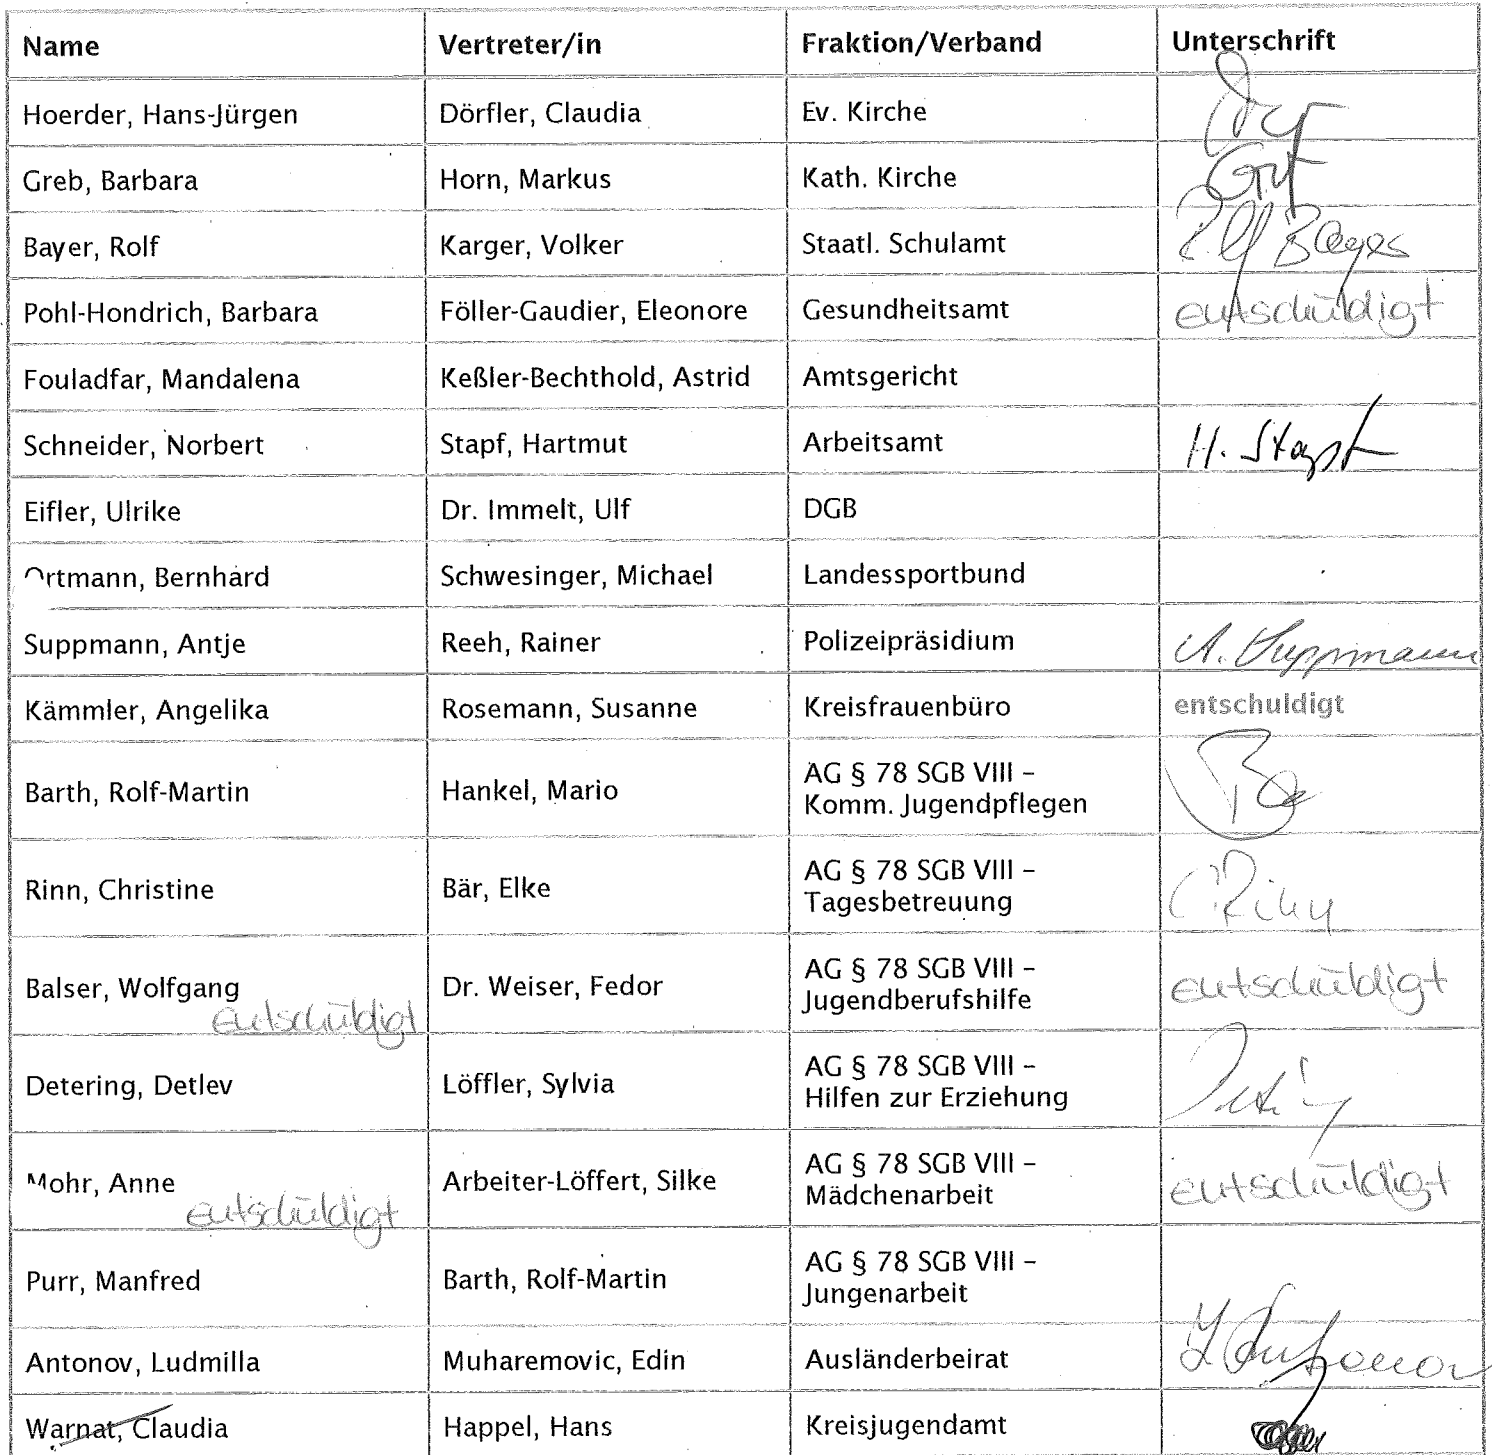 Name Vertreter/in Fraktion/Verband Unterschrift
Hoerder, Hans-Jürgen Dörfler, Claudia Ev. Kirche
Greb, Barbara Horn, Markus Kath. Kirche
Bayer, Rolf Karger, Volker Staatl. Schulamt Rolf Bayer
Pohl-Hondrich, Barbara Föller-Gaudier, Eleonore Gesundheitsamt entschuldigt
Fouladfar, Mandalena Keßler-Bechthold, Astrid Amtsgericht
Schneider, Norbert Stapf, Hartmut Arbeitsamt H. Stapf
Eifler, Ulrike Dr. Immelt, Ulf DGB
Ortmann, Bernhard Schwesinger, Michael Landessportbund
Suppmann, Antje Reeh, Rainer Polizeipräsidium A. Suppmann
Kämmler, Angelika Rosemann, Susanne Kreisfrauenbüro entschuldigt
Barth, Rolf-Martin Hankel, Mario AG § 78 SGB VIII –
Komm. Jugendpflegen
Rinn, Christine Bär, Elke AG § 78 SGB VIII –
Tagesbetreuung C Rinn
Balser, Wolfgang Dr. Weiser, Fedor AG § 78 SGB VIII –
Jugendberufshilfe entschuldigt
entschuldigt
Detering, Detlev Löffler, Sylvia AG § 78 SGB VIII –
Hilfen zur Erziehung
Mohr, Anne Arbeiter-Löffert, Silke AG § 78 SGB VIII –
Mädchenarbeit entschuldigt
entschuldigt
Purr, Manfred Barth, Rolf-Martin AG § 78 SGB VIII –
Jungenarbeit
Antonov, Ludmilla Muharemovic, Edin Ausländerbeirat L Antonov
Warnat, Claudia Happel, Hans Kreisjugendamt